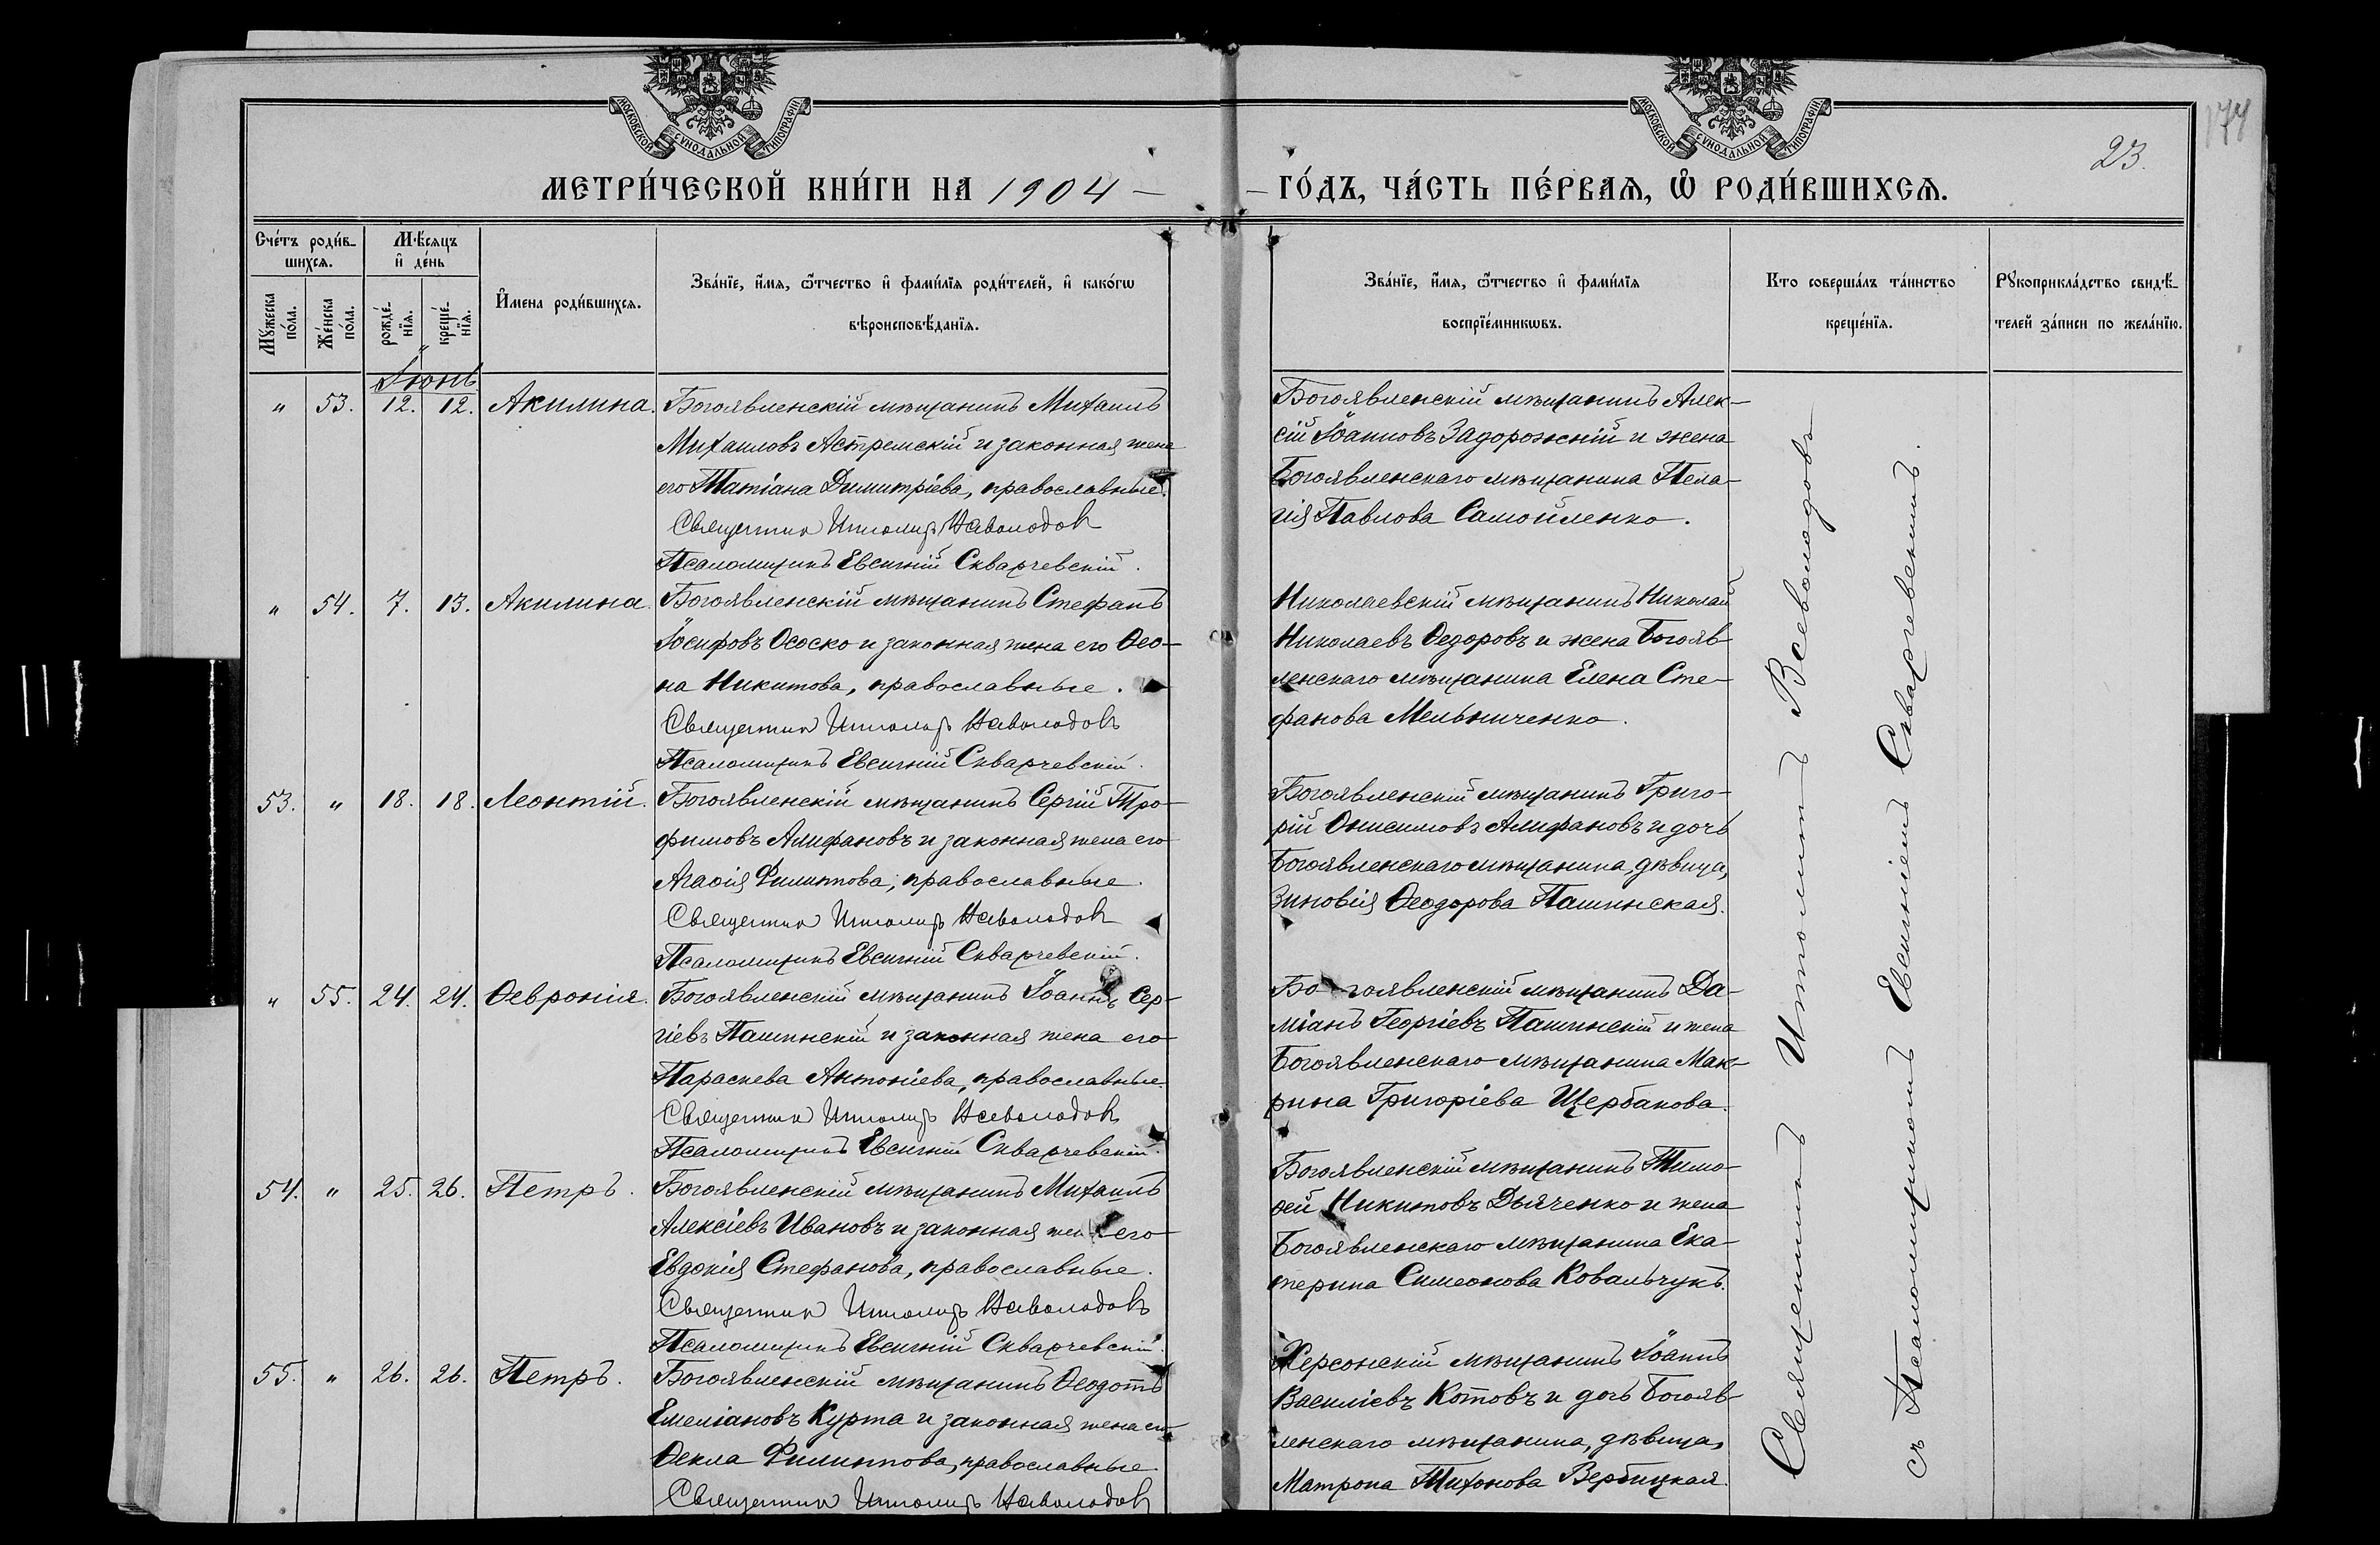 МОСКОВСКОЙ СѴНОДАЛЬНОЙ ТИПОГРАФІИ
МОСКОВСКОЙ СѴНОДАЛЬНОЙ ТИПОГРАФІИ
174
23.
МЕТРИ́ЧЕСКОЙ КНИ́ГИ НА 1904 —
— ГО́ДЪ, ЧА́СТЬ ПЕ́РВАѦ, Ѡ҆ РОДИ́ВШИХСѦ.
Сче́тъ роди́в-
шихсѧ.
Мѣ́сѧцъ
и҆ де́нь
Мꙋ́жеска
по́ла.
Же́нска
по́ла.
рожде́-
нїѧ.
креще́-
нїѧ.
И҆́мена роди́вшихсѧ.
Зва́нїе, и҆́мѧ, ѻ҆́тчество и҆ фами́лїѧ роди́телей, и҆ како́гѡ
вѣроисповѣ́данїѧ.
Зва́нїе, и҆́мѧ, ѻ҆́тчество и҆ фами́лїѧ
воспрїе́мникѡвъ.
Кто соверша́лъ та́инство
креще́нїѧ.
Рꙋкоприкла́дство свидѣ́-
телей за́писи по жела́нїю.
Іюнь
" 53. 12. 12. Акилина. Богоявленскій мѣщанинъ Михаилъ
Михаиловъ Астремскій и законная жена
его Татіана Димитріева, православные.
Священник Ипполит Всеволодов
Псаломщикъ Евсигній Скварчевскій.
Богоявленскій мѣщанинъ Алек-
сій Іоанновъ Задорожній и жена
Богоявленскаго мѣщанина Пела-
гія Павлова Самойленко.
" 54. 7. 13. Акилина. Богоявленскій мѣщанинъ Стефанъ
Іосифовъ Ососко и законная жена его Ѳео-
на Никитова, православные.
Священник Ипполит Всеволодовъ
Псаломщикъ Евсигній Скварчевскій.
Николаевскій мѣщанинъ Николай
Николаевъ Ѳедоровъ и жена Богояв-
ленскаго мѣщанина Елена Сте-
фанова Мельниченко.
53. " 18. 18. Леонтій. Богоявленскій мѣщанинъ Сергій Тро-
фимовъ Алифановъ и законная жена его
Агаѳія Филиппова, православные.
Священник Ипполит Всеволодов
Псаломщикъ Евсигній Скварчевскій.
Богоявленскій мѣщанинъ Григо-
рій Онисимовъ Алифановъ и дочь
Богоявленскаго мѣщанина, дѣвица,
Зиновія Ѳеодорова Пашинская.
" 55. 24. 24. Ѳевронія. Богоявленскій мѣщанинъ Іоаннъ Сер-
гіевъ Пашинскій и законная жена его
Параскева Антоніева, православные.
Священник Ипполит Всеволодов
Псаломщикъ Евсигній Скварчевскій.
Бо-гоявленскій мѣщанинъ Да-
міанъ Георгіевъ Пашинскій и жена
Богоявленскаго мѣщанина Мак-
рина Григоріева Щербакова.
54. " 25. 26. Петръ. Богоявленскій мѣщанинъ Михаилъ
Алексіевъ Ивановъ и законная жена его
Евдокія Стефанова, православные.
Священник Ипполит Всеволодовъ
Псаломщикъ Евсигній Скварчевскій.
Богоявленскій мѣщанинъ Тимо-
ѳей Никитовъ Дьяченко и жена
Богоявленскаго мѣщанина Ека-
терина Симеонова Ковальчукъ.
55. " 26. 26. Петръ. Богоявленскій мѣщанинъ Ѳеодотъ
Емеліановъ Курта и законная жена его
Ѳекла Филиппова, православные
Священник Ипполит Всеволодов
Херсонскій мѣщанинъ Іоаннъ
Василіевъ Котовъ и дочь Богояв-
ленскаго мѣщанина, дѣвица,
Матрона Тихонова Вербицкая.
Священникъ Ипполитъ Всеволодовъ
съ Псаломщикомъ Евсигніемъ Скварчевскимъ.